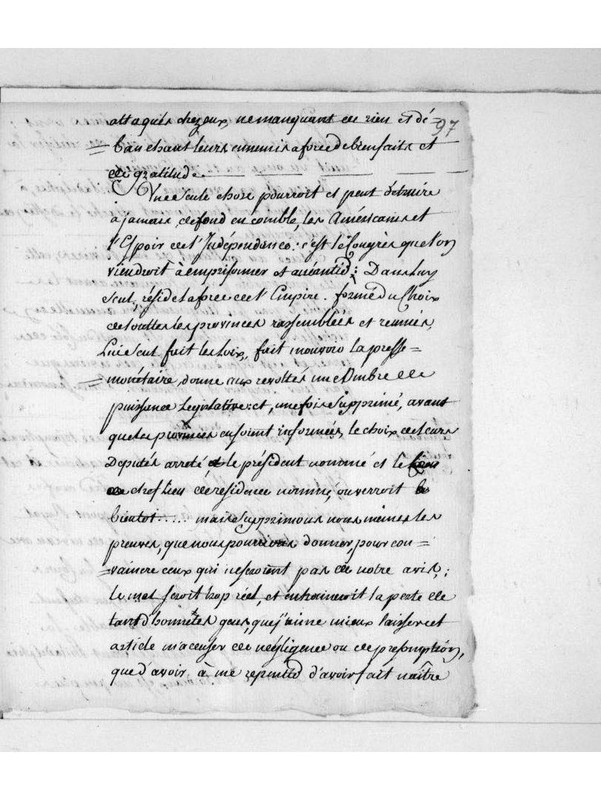 97
attaqués chez eux, ne manquant de rien et dé-
bauchant leurs ennemis a force de bienfaits et
de gratitude.
Une seule chose pourroit et peut détruire
à jamais, de fond en comble, les Américains et
l'Espoir de l'Indépendence: c'est le Congrès que l'on
viendroit à emprisonner et anéantir; Dans luy
seul, réside la force de l'Empire. formé du Choix
de toutes les provinces rassemblées et reunies,
Lui seul fait les loix, fait mouvoir la presse-
monétaire, donne aux revoltés une ombre de
puissance Legislative: et, une fois supprimé, avant
que les provinces en soient informées, le choix de leurs
Deputés arreté et le président nommé et le
chef lieu de residence nommé, on verroit
bientot..... mais supprimons nous mêmes les
preuves, que nous pourrions donner, pour con-
-vaincre ceux qui ne seroient pas de notre avis;
le mal seroit trop réel, et entraineroit la perte de
tant d'honnêtes gens, que j'aime mieux laisser cet
article m'accuser de négligence ou de présomption,
que d'avoir à me repentir d'avoir fait naître